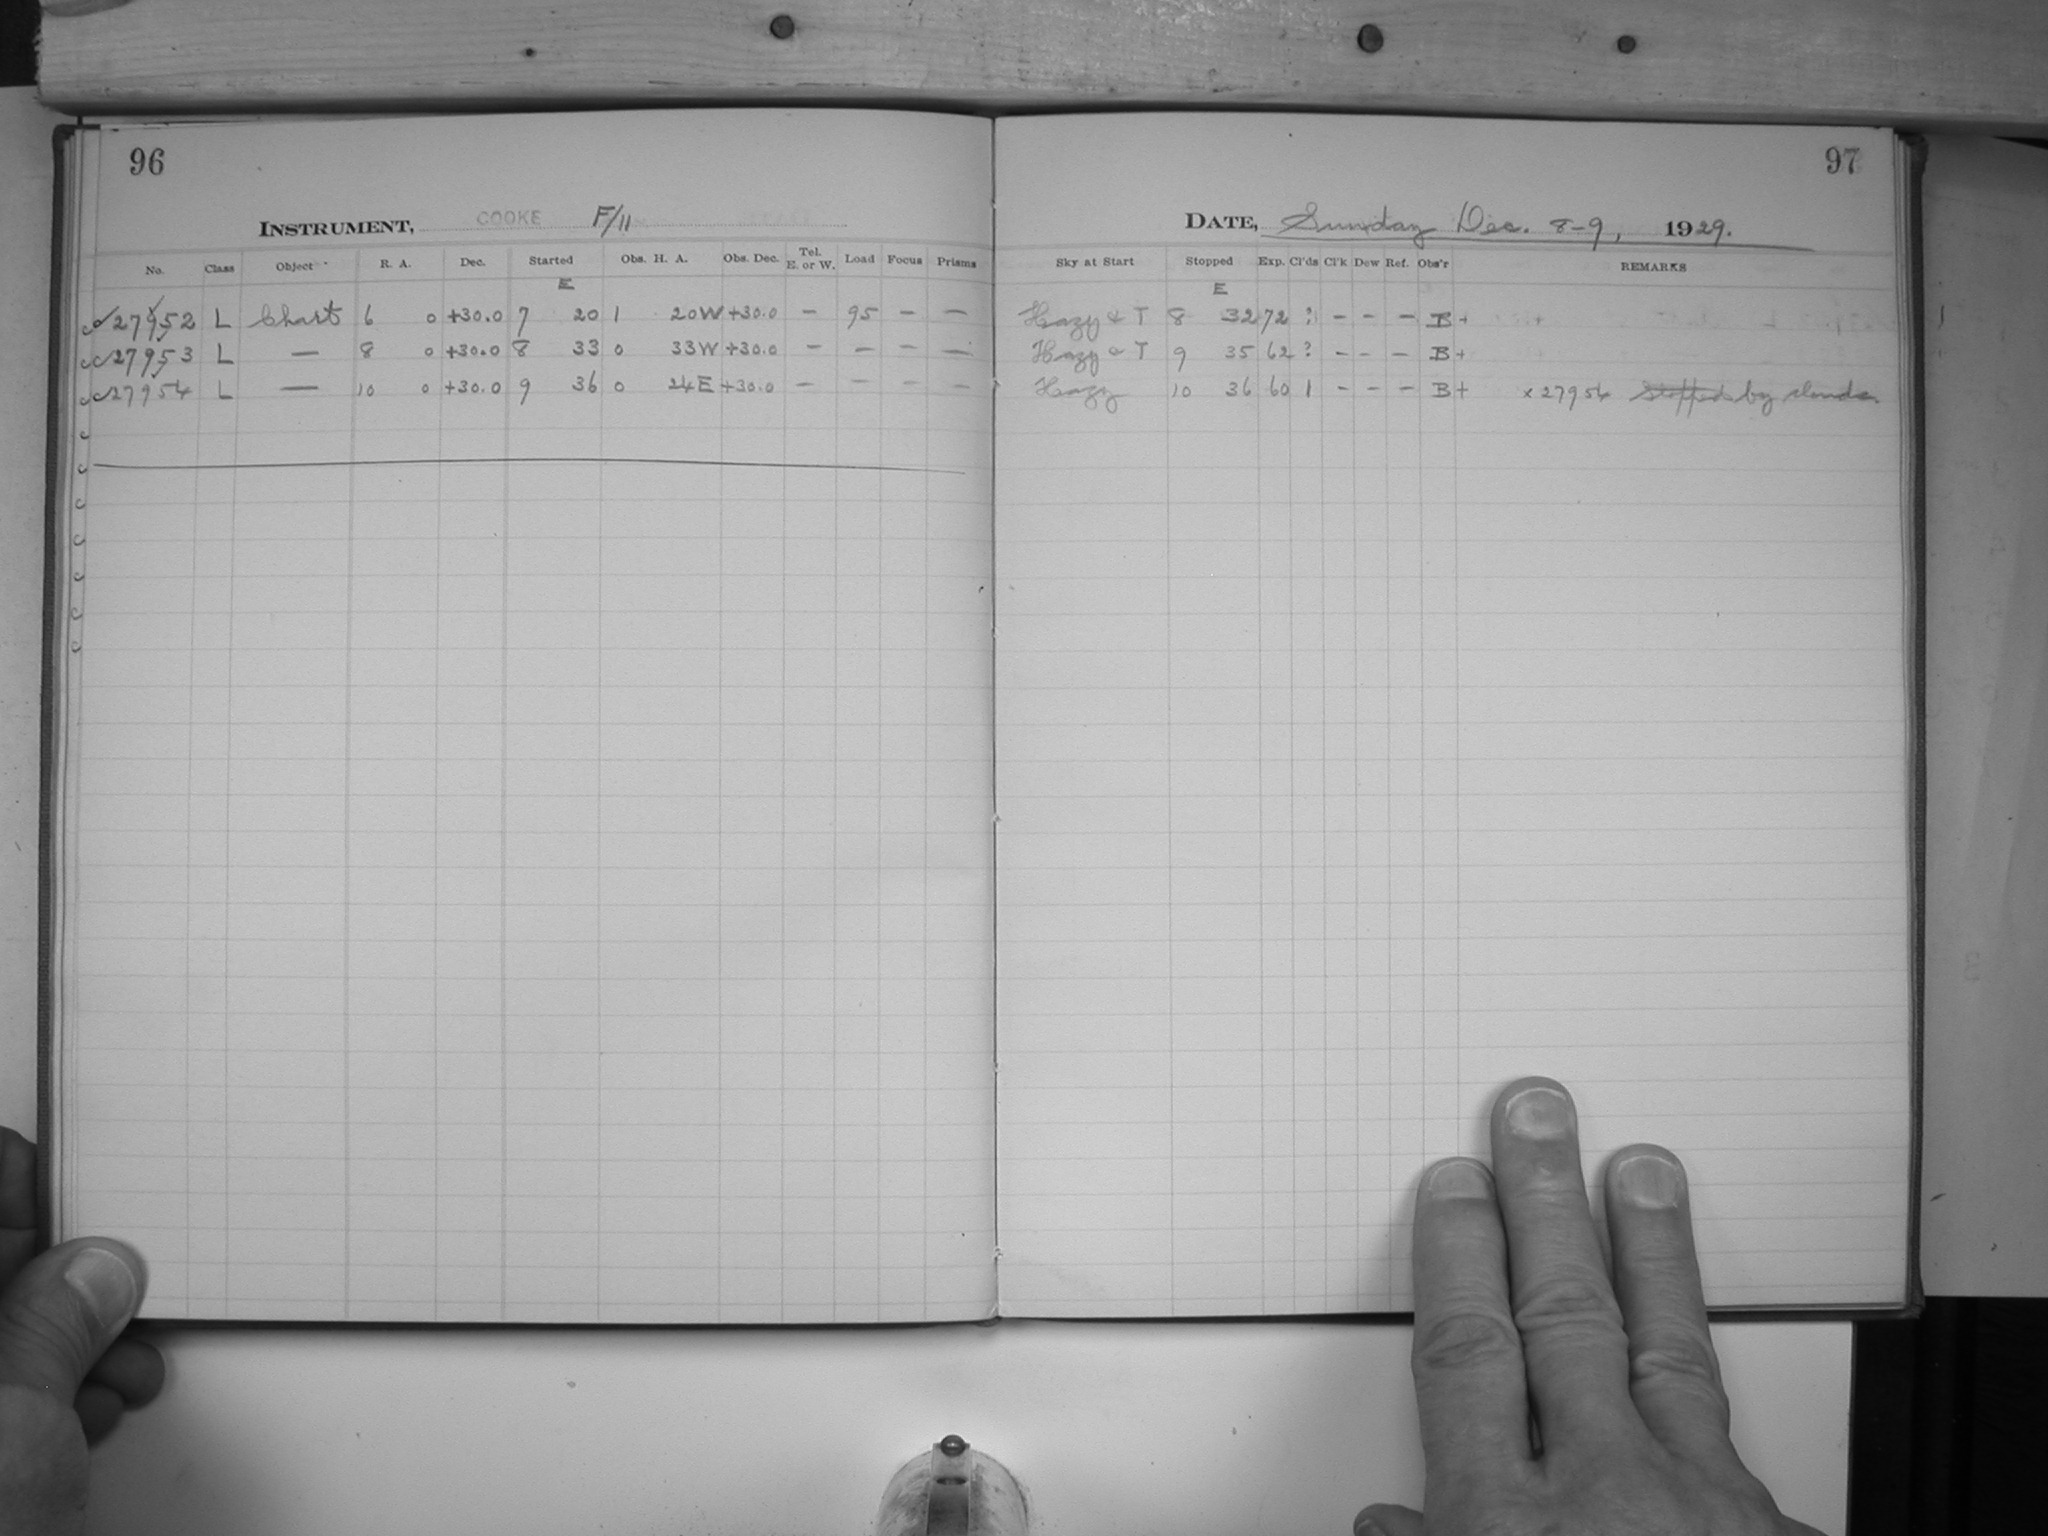 96
INSTRUMENT, COOKE F/11
No. Class Object R. A. Dec. Started Obs. H. A. Obs. Dec. Tel. E. or W. Load Focus Prisms
E
27952 L Chart 6 0 +30.0 7 20 1 20W +30.0 — 95 — —
27953 L — 8 0 +30.0 8 33 0 33W +30.0 — — — —
27954 L — 10 0 +30.0 9 36 0 24E +30.0 — — — —
97
DATE, Sunday Dec. 8-9, 1929.
Sky at Start Stopped Exp. Cl'ds Cl'k Dew Ref. Obs'r REMARKS
E
Hazy & T 8 32 72 ? — — — B+
Hazy & T 9 35 62 ? — — — B+
Hazy 10 36 60 1 — — — B+ x 27954 Stopped by clouds.